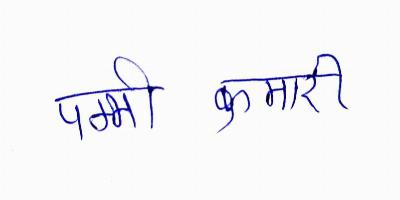 पम्मी कुमारी